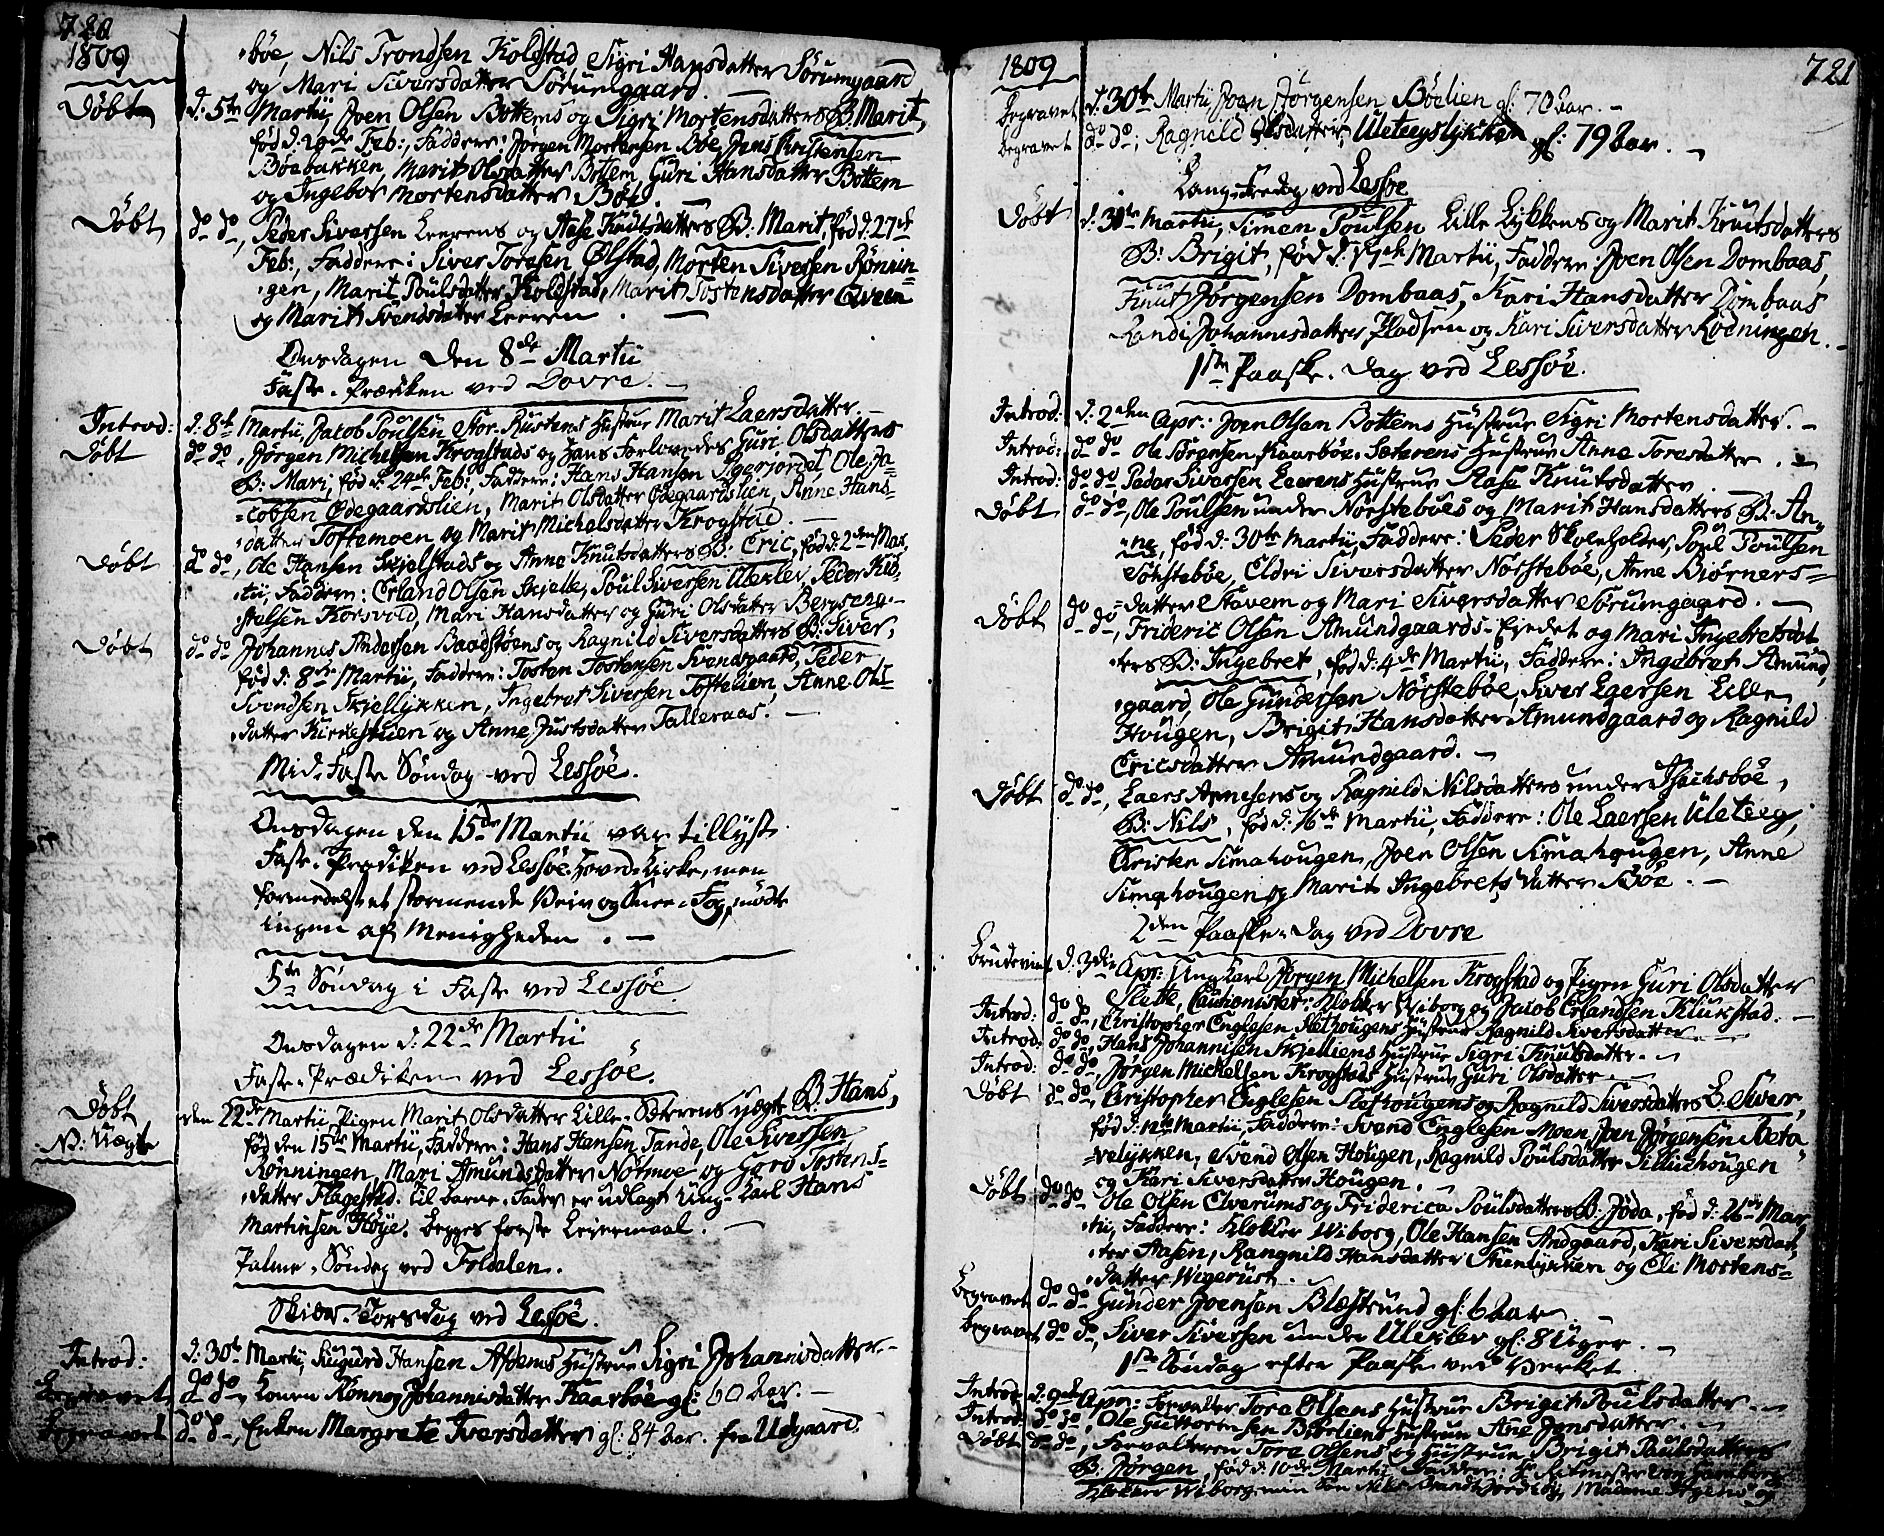 720
1809
bøe, Nils Trondsen Kolstad Sigri Hansdatter Sørumgaard
og Mari Siversdatter Sørumgaard. —
Døbt d: 5te Martii Joen Olsen Bottems og Sigri Mortensdatters B: Marit,
Feb:, Faddere: Jørgen Mortensen Bøe, Jens Christensen
Bøebakken, Marit Olsdatter Bottem Guri Hansdatter Bottem
og Ingebor Mortensdatter Bøe. —
Døbt do do, Peder Siversen Leerens og Aase Knudsdatters B: Marit, fød d: 27de
Feb:, Faddere: Siver Toresen Ølstad, Morten Siversen Rønnin-
gen, Marit Poulsdatter Kolstad, Marit Tostensdatter Qveen
og Marit Svendsdatter Leeren. —
Onsdagen den 8de Martii
Faste-Prædiken ved Dovre. —
Introd: d: 8de Martii, Jacob Poulsen Stor-Rustens Hustrue Marit Laersdatter. —
Døbt do do, Jørgen Michelsen Krogstads og Hans Forlovedes Guri Olsdatters
B: Mari, fød d: 24de Feb:, Faddere: Hans Hansen Ole Ja-
cobsen Ødegaardslien, Marit Olsdatter Ødegaardslien, Anne Hans-
datter Toftemoen og Marit Michelsdatter Krogstad. —
Døbt do do, Ole Hansen Skjelstads og Anne Knutsdatters B: Eric, fød d: 2den Mar-
tii, Faddere: Erland Olsen Skjelle, Poul Siversen Ulekler, Peder
Korsvold, Mari Hansdatter og Guri Olsdatter
Døbt do do Johannes Andersen Baadstøens og Ragnild Siversdatters B: Siver,
fød d: 8de Martii, Faddere: Tosten Tostensen Svendsgaard, Peder
Svendsen Skjellykken, Ingebret Siversen Toftelien, Anne Ols-
datter Kirkestuen og Anne Justsdatter Talleraas. —
Mid-Faste Søndag ved Lessøe.
Onsdagen den 15de Martii var tillyst
Faste-Prædiken ved Lessøe Hoved-Kirke, men
formedelst et stormende Veir og Snee-Fog, mødte
ingen af Menigheden. —
5te Søndag i Faste ved Lessøe
Onsdagen d: 22de Martii
Faste-Prædiken ved Lessøe.
Døbt den 22de Martii Pigen Marit Olsdatter Lille-Sæterens uægte B: Hans,
N: Uægte fød den 15de Martii, Faddere: Hans Hansen Tande, Ole Siversen
Rønningen, Mari Amundsdatter Nørmoe og Goro Tostens-
datter Flagestad. til barne-Fader er udlagt Ung-Karl Hans
Martinsen Høye. begges første Leiermaal. —
Palme-Søndag ved Foldalen.
Skiær-Torsdag ved Lessøe.
Introd: d: 30te Martii, Siugurd Hansen Afdems Hustrue Sigri Johannisdatter. —
Begravet do do, Konen Rønnog Johannisdatter Kaarbøe gl: 60 Aar. —
Begravet do do, Enken Margrete Iversdatter gl: 84 Aar. fra Udgaard.
1809
721
Begravet d: 30te Martii Joen Jørgensen Bøelien gl: 70 Aar. —
Begravet do do, Ragnild Olsdatter, Uleteegslykken gl: 79 Aar. —
Lang-Fredag ved Lessøe
Døbt d: 31te Martii, Simen Poulsen Lille Lykkens og Marit Knutsdatters
B: Brigit, fød d: 17de Martii, Faddere: Joen Olsen Dombaas,
Knut Jørgensen Dombaas, Kari Hansdatter Dombaas
Randi Johannisdatter Pladsen og Kari Siversdatter Rødningen. —
1ste Paaske-Dag ved Lessøe.
Introd: d: 2den Apr: Joen Olsen Bottems Hustrue Sigri Mortensdatter. —
Introd: do do Ole Sørensen Kaarbøe-Sæterens Hustrue Anne Toresdatter. —
Introd: do do Peder Siversen Leerens Hustrue Aase Knutsdatter.
Døbt do do, Ole Poulsen under Nørstebøes og Marit Hansdatters B: An-
ne, fød d: 30te Martii, Faddere: Peder Skoleholder, Poul Poulsen
Nørstebøe, Eldri Siversdatter Nørstebøe, Anne Biørners-
datter Stavem og Mari Siversdatter Sørumgaard. —
Døbt do do, Frideric Olsen Amundgaards-Eiedet og Mari Ingebretsdat-
ters B: Ingebret, fød d: 4de Martii, Faddere: Ingebret Amund-
gaard, Ole Gundersen Nørstebøe, Siver Egersen Lille
Hougen, Brigit Hansdatter Amundgaard og Ragnild
Ericsdatter Amundgaard. —
Døbt do do, Laers Arnesens og Ragnild Nilsdatters under Isichsbøe,
B: Nils, fød d: 16de Martii, Faddere: Ole Laersen Uleteeg,
Christen Simahougen, Joen Olsen Simahougen, Anne
Simahougen og Marit Ingebretsdatter Bøe. —
2den Paaske-Dag ved Dovre
Brudeviet d: 3die Apr: Ung karl Jørgen Michelsen Krogstad og Pigen Guri Olsdatter
Slette, Cautionister: Klokker Wiborg og Jacob Erlandsen Klukstad. —
Introd: do do, Christopher Englesen Slethougens Hustrue Ragnild Siversdatter. —
Introd: do do, Hans Johannisen Skjelliens Hustrue Sigri Knutsdatter. —
Introd: do do, Jørgen Michelsen Krogstads Hustrue Guri Olsdatter. —
Døbt do do, Christopher Englesen Slethougens og Ragnild Siversdatters B: Siver,
fød d: Martii, Faddere: Svend Englesen Moen, Joen Jørgensen
velykken, Svend Olsen Hougen, Ragnild Poulsdatter Silliuhougen
og Kari Siversdatter Hougen. —
Døbt do do Ole Olsen Elverums og Friderica Poulsdatters B: Jøda, fød d: 26de Mar-
tii, Faddere: Klokker Wiborg, Ole Hansen Andgaard, Kari Siversdat-
ter Aasen, Rangnild Hansdatter og Eli Mortens-
datter Wigerust. —
Begravet do do Gunder Joensen Blæstrund gl: 6 Aar —
Begravet do do, Siver Siversen under Ulekler gl: 8 Uger. —
1ste Søndag efter Paaske ved Verket
Introd: d: 9de Apr: Forvalter Tore Olsens Hustrue Brigit Poulsdatter. —
Introd: do do, Ole Guttormsen Bøeliens Hustrue Ane Jonsdatter. —
Døbt do do, Forvalteren Tore Olsens og Hustrue Brigit Poulsdatters
B: Jørgen, fød d: 10de Martii, Faddere:
Klokker Wiborg, min Søn Madame